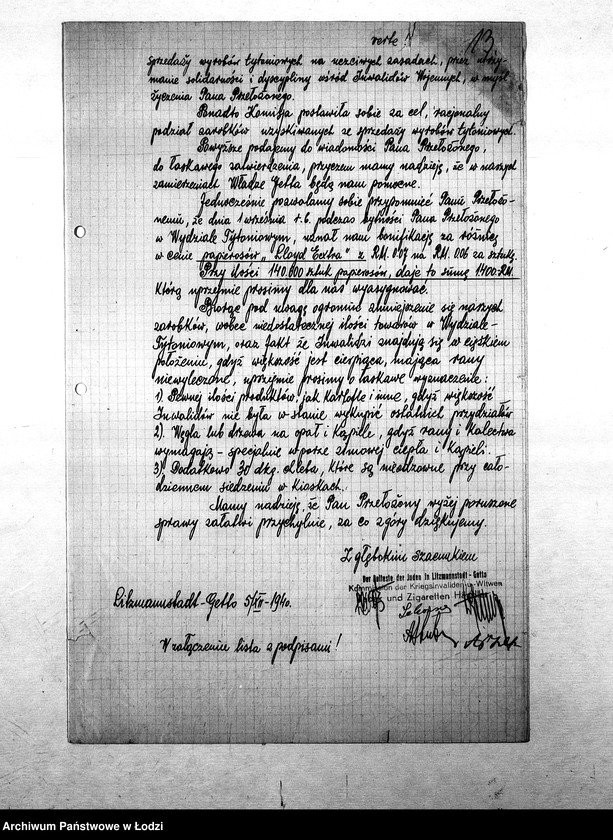 verte!
13
sprzedaży wyrobów tytoniowych na uczciwych zasadach, przez utrzy-
manie solidarności i dyscypliny wśród Inwalidów Wojennych, w myśl
życzenia Pana Przełożonego.
Ponadto Komisja postawiła sobie za cel, racjonalny
podział zarobków uzyskiwanych ze sprzedaży wyrobów tytoniowych.
Powyższe podajemy do wiadomości Pana Przełożonego,
do łaskawego zatwierdzenia, przyczem mamy nadzieję, że w naszych
zamierzeniach Władze Getta będą nam pomocne.
Jednocześnie pozwalamy sobie przypomnieć Panu Przełożo-
nemu, że dnia 1 września r.b. podczas bytności Pana Przełożonego
w Wydziale Tytoniowym, uznał nam bonifikację za różnicę
w cenie papierosów "Lloyd Extra" z RM. 0.07 na RM. 0.06 za sztukę.
Przy ilości 140.000 sztuk papierosów, daje to sumę 1400.-RM.
którą uprzejmie prosimy dla nas wyasygnować.
Biorąc pod uwagę ogromne zmniejszenie się naszych
zarobków, wobec niedostatecznej ilości towarów w Wydziale-
Tytoniowym, oraz fakt że Inwalidzi znajdują się w ciężkiem
położeniu, gdyż większość jest cierpiąca, mająca rany
niewyleczone, uprzejmie prosimy o łaskawe wyznaczenie:
1) Pewnej ilości produktów, jak kartofle i inne, gdyż większość
Inwalidów nie była w stanie wykupić ostatnich przydziałów
2). Węgla lub drzewa na opał i kąpiele, gdyż rany i kalectwa
wymagają - specjalnie w porze zimowej ciepła i kąpieli.
3) Dodatkowo 30 dkg. chleba, które są nieodzowne przy cało-
dziennem siedzeniu w kioskach.
Mamy nadzieję, że Pan Przełożony wyżej poruszone
sprawy załatwi przychylnie, za co zgóry dziękujemy.
Z głębokim szacunkiem
Der Aelteste der Juden in Litzmannstadt - Getto
Kommission der Kriegsinvaliden u. Witwen
und Zigaretten
Litzmannstadt-Getto 5/XII-1940.
W załączeniu lista z podpisami!
Archiwum Państwowe w Łodzi